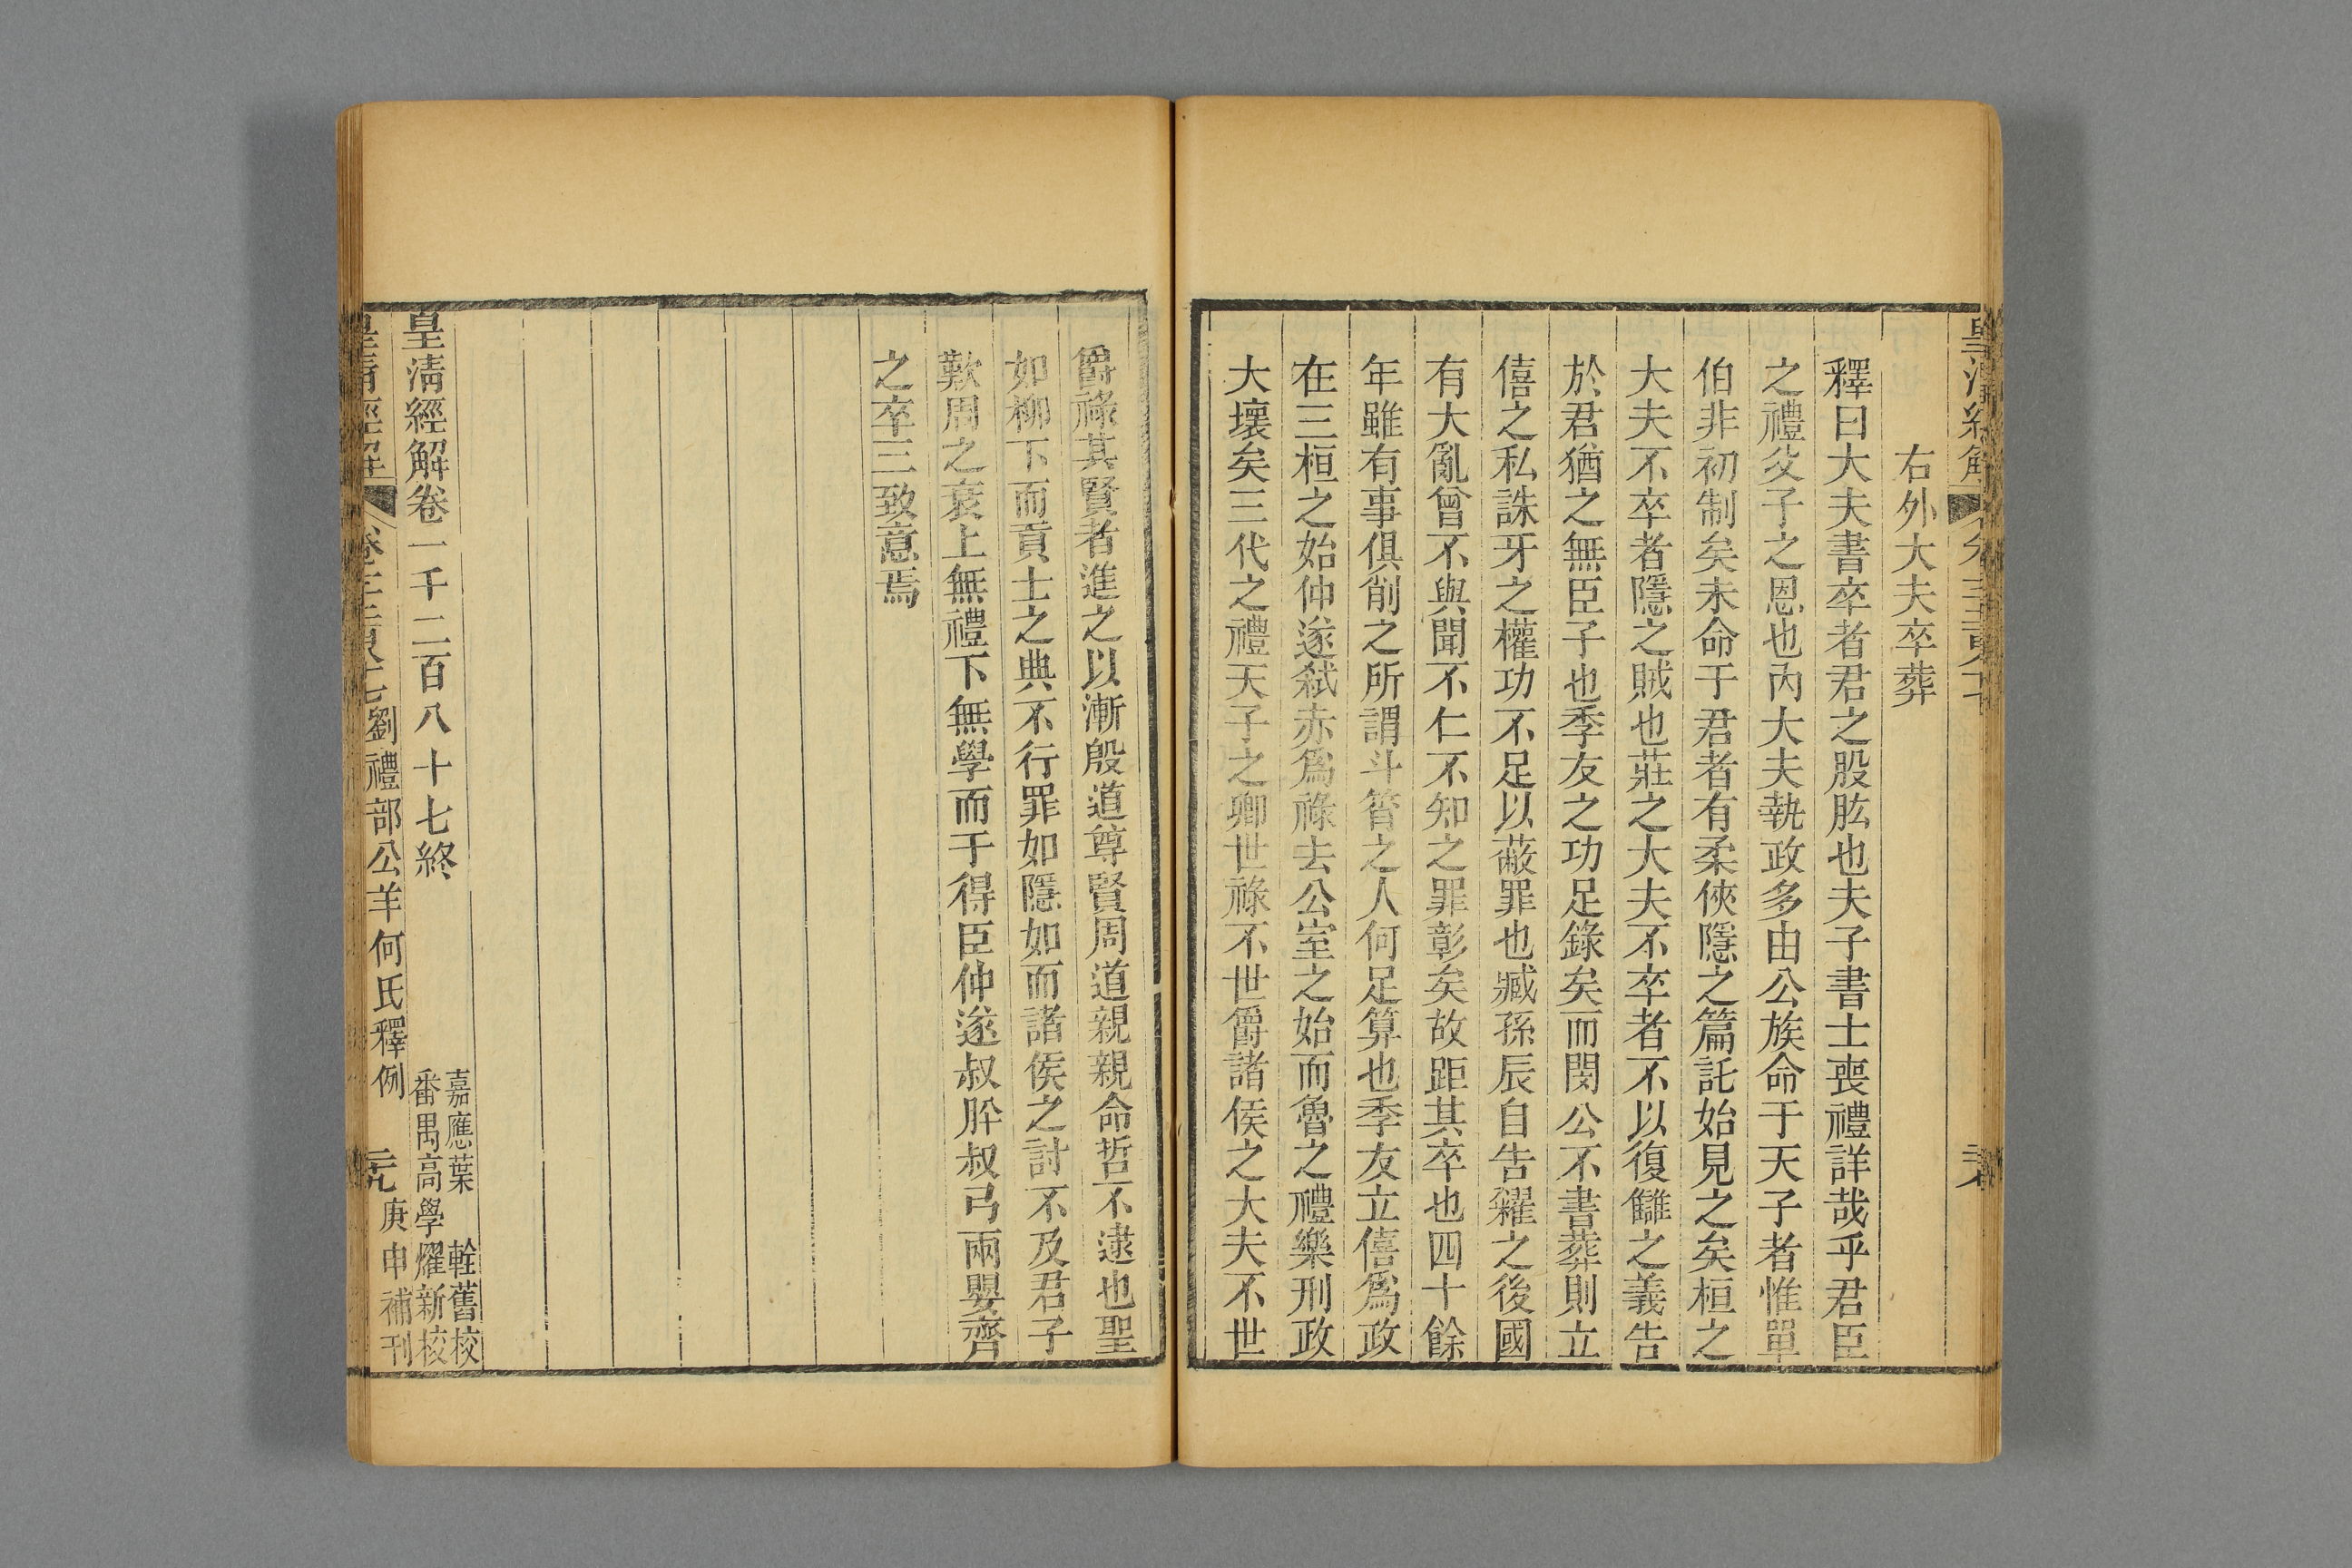 右外大夫卒葬
釋曰大夫書卒者君之股肱也夫子書士喪禮詳哉乎君臣
之禮父子之恩也內大夫執政多由公族命于天子者惟單
伯非初制矣未命于君者有柔俠隱之篇託始見之矣桓之
大夫不卒者隱之賊也莊之大夫不卒者不以復讎之義告
於君猶之無臣子也季友之功足錄矣而閔公不書葬則立
僖之私誅牙之權功不足以蔽罪也臧孫辰自告糴之後國
有大亂曾不與聞不仁不知之罪彰矣故距其卒也四十餘
年雖有事俱削之所謂斗筲之人何足算也季友立僖爲政
在三桓之始仲遂弑赤爲祿去公室之始而魯之禮樂刑政
大壞矣三代之禮天子之卿世祿不世爵諸侯之大夫不世
爵祿其賢者進之以漸殷道尊賢周道親親命哲不逮也聖
如柳下而貢士之典不行罪如隱如而諸侯之討不及君子
歎周之衰上無禮下無學而于得臣仲遂叔肸叔弓兩嬰齊
之卒三致意焉
皇淸經解卷一千二百八十七終
嘉應葉軽舊校
番禺高學燿新校
皇淸經解
劉禮部公羊何氏釋例
庚申補刊